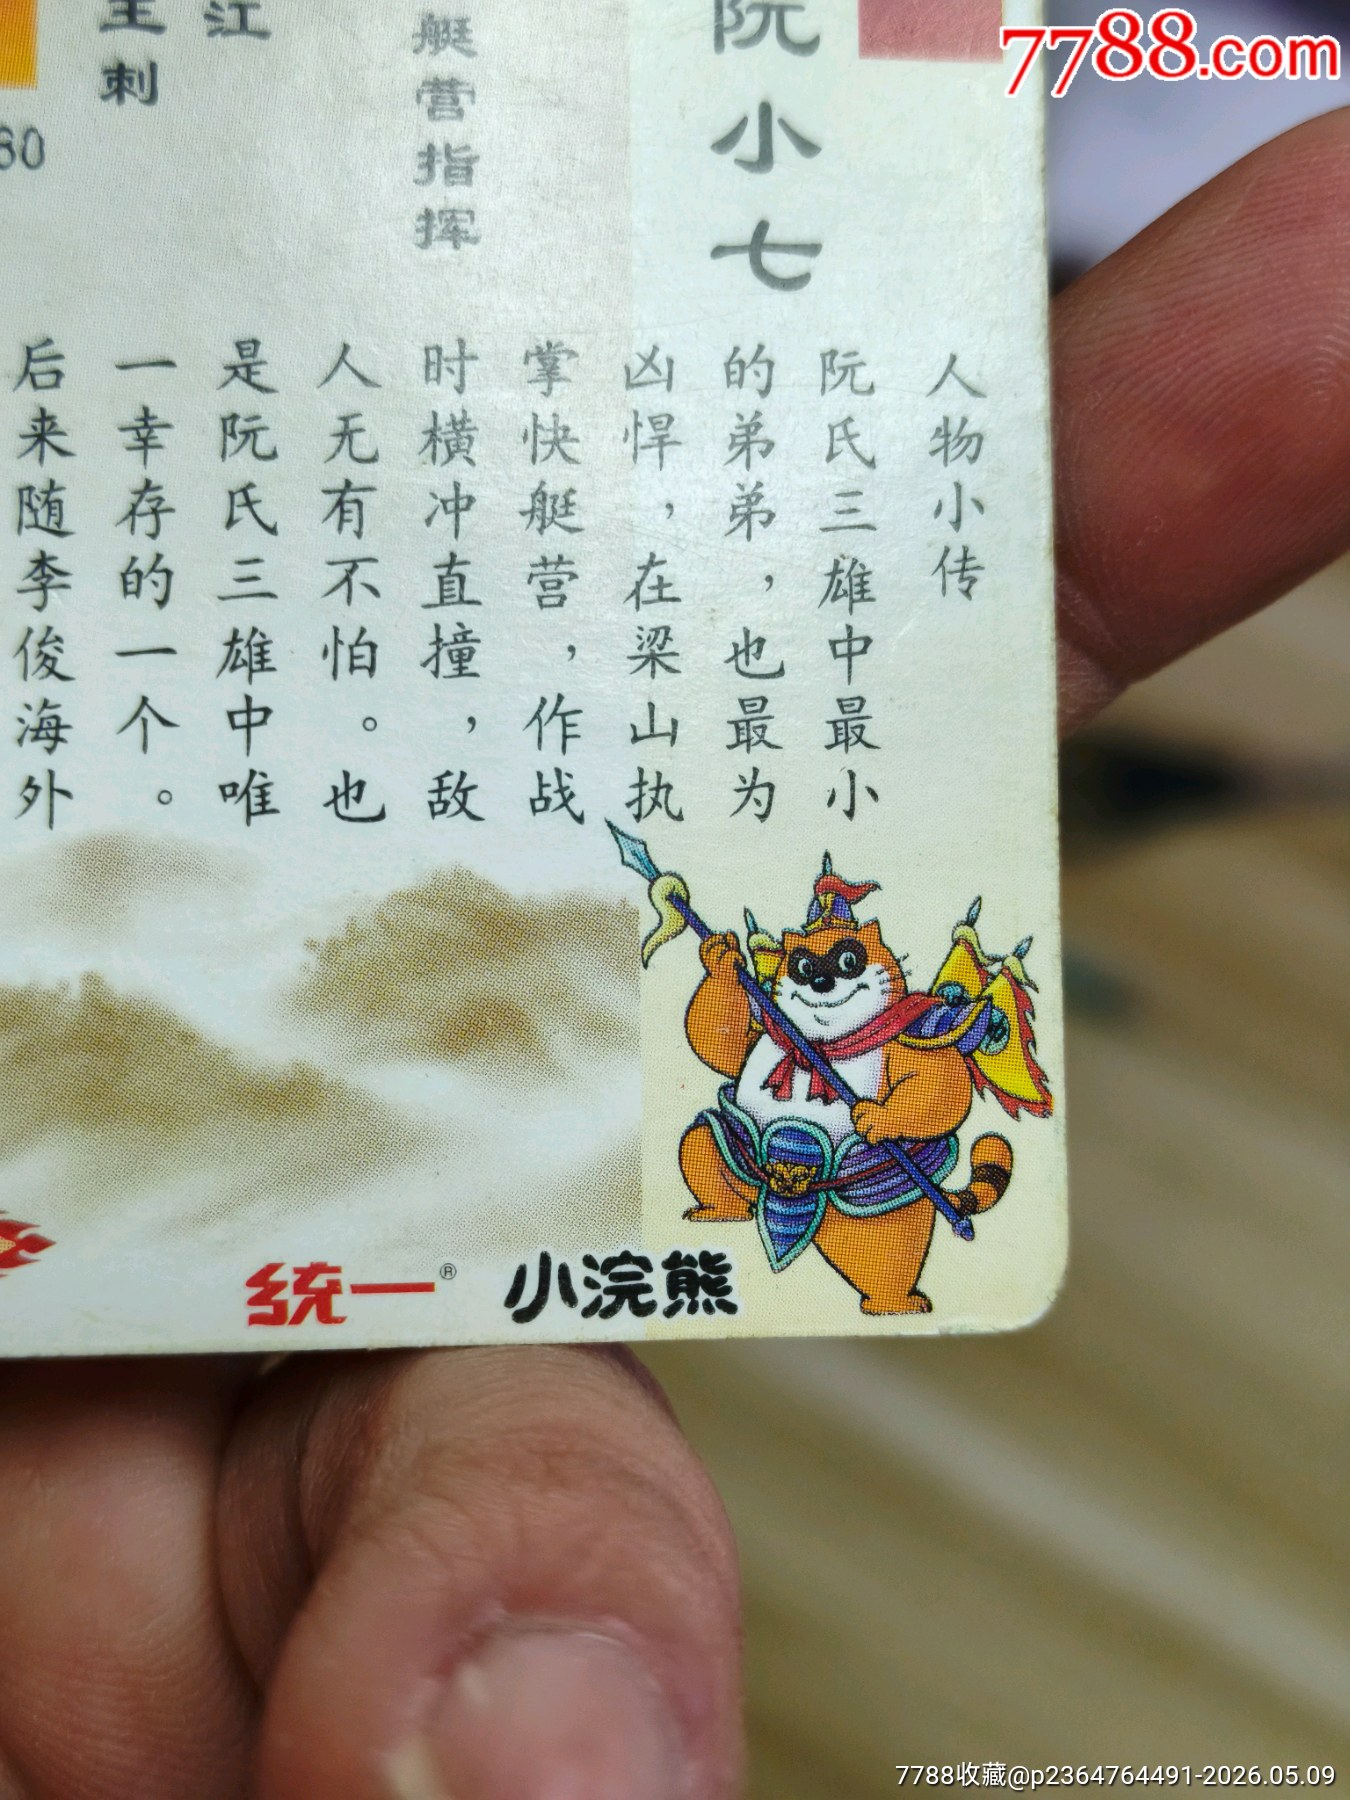 7788.com
阮小七
人物小传
阮氏三雄中最小
的弟弟，也最为
凶悍，在梁山执
掌快艇营，作战
时横冲直撞，敌
人无有不怕。也
是阮氏三雄中唯
一幸存的一个。
后来随李俊海外
艇营指挥
江
刺
60
统一®
小浣熊
7788收藏@p2364764491-2026.05.09